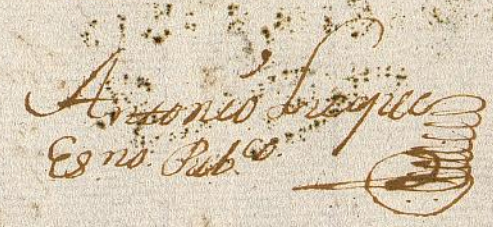 Antonio Luque
Esno. Pubco.